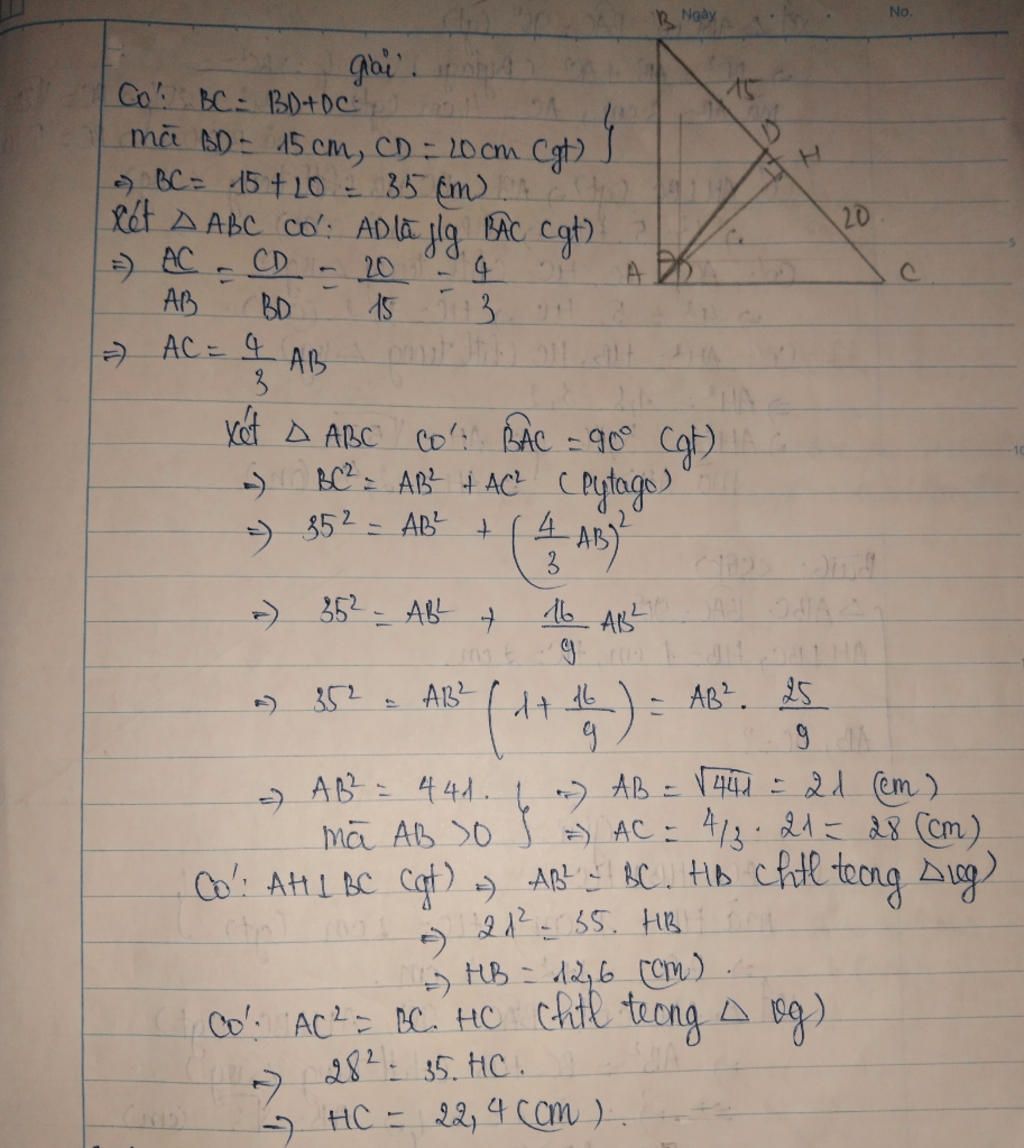 Ngày
No.
B
15
D
H
20
A
C
Giải:
Có: BC = BD+DC
mà BD = 15cm, CD = 20cm (gt) }
=> BC = 15+20 = 35 (cm)
Xét △ABC có: AD là p/g BAC (gt)
=> AC/AB = CD/BD = 20/15 = 4/3
=> AC = 4/3 AB
Xét △ ABC có: BAC = 90° (gt)
=> BC² = AB² + AC² (Pytago)
=> 35² = AB² + (4/3 AB)²
=> 35² = AB² + 16/9 AB²
=> 35² = AB² (1 + 16/9) = AB² . 25/9
=> AB² = 441. } => AB = √441 = 21 (cm)
mà AB >0 } => AC = 4/3 . 21 = 28 (cm)
Có: AH⊥BC (gt) => AB² = BC. HB (htl trong △vg)
=> 21² = 35. HB
=> HB = 12,6 (cm).
Có: AC² = BC. HC (htl trong △ vg)
=> 28² = 35. HC.
=> HC = 22,4 (cm).